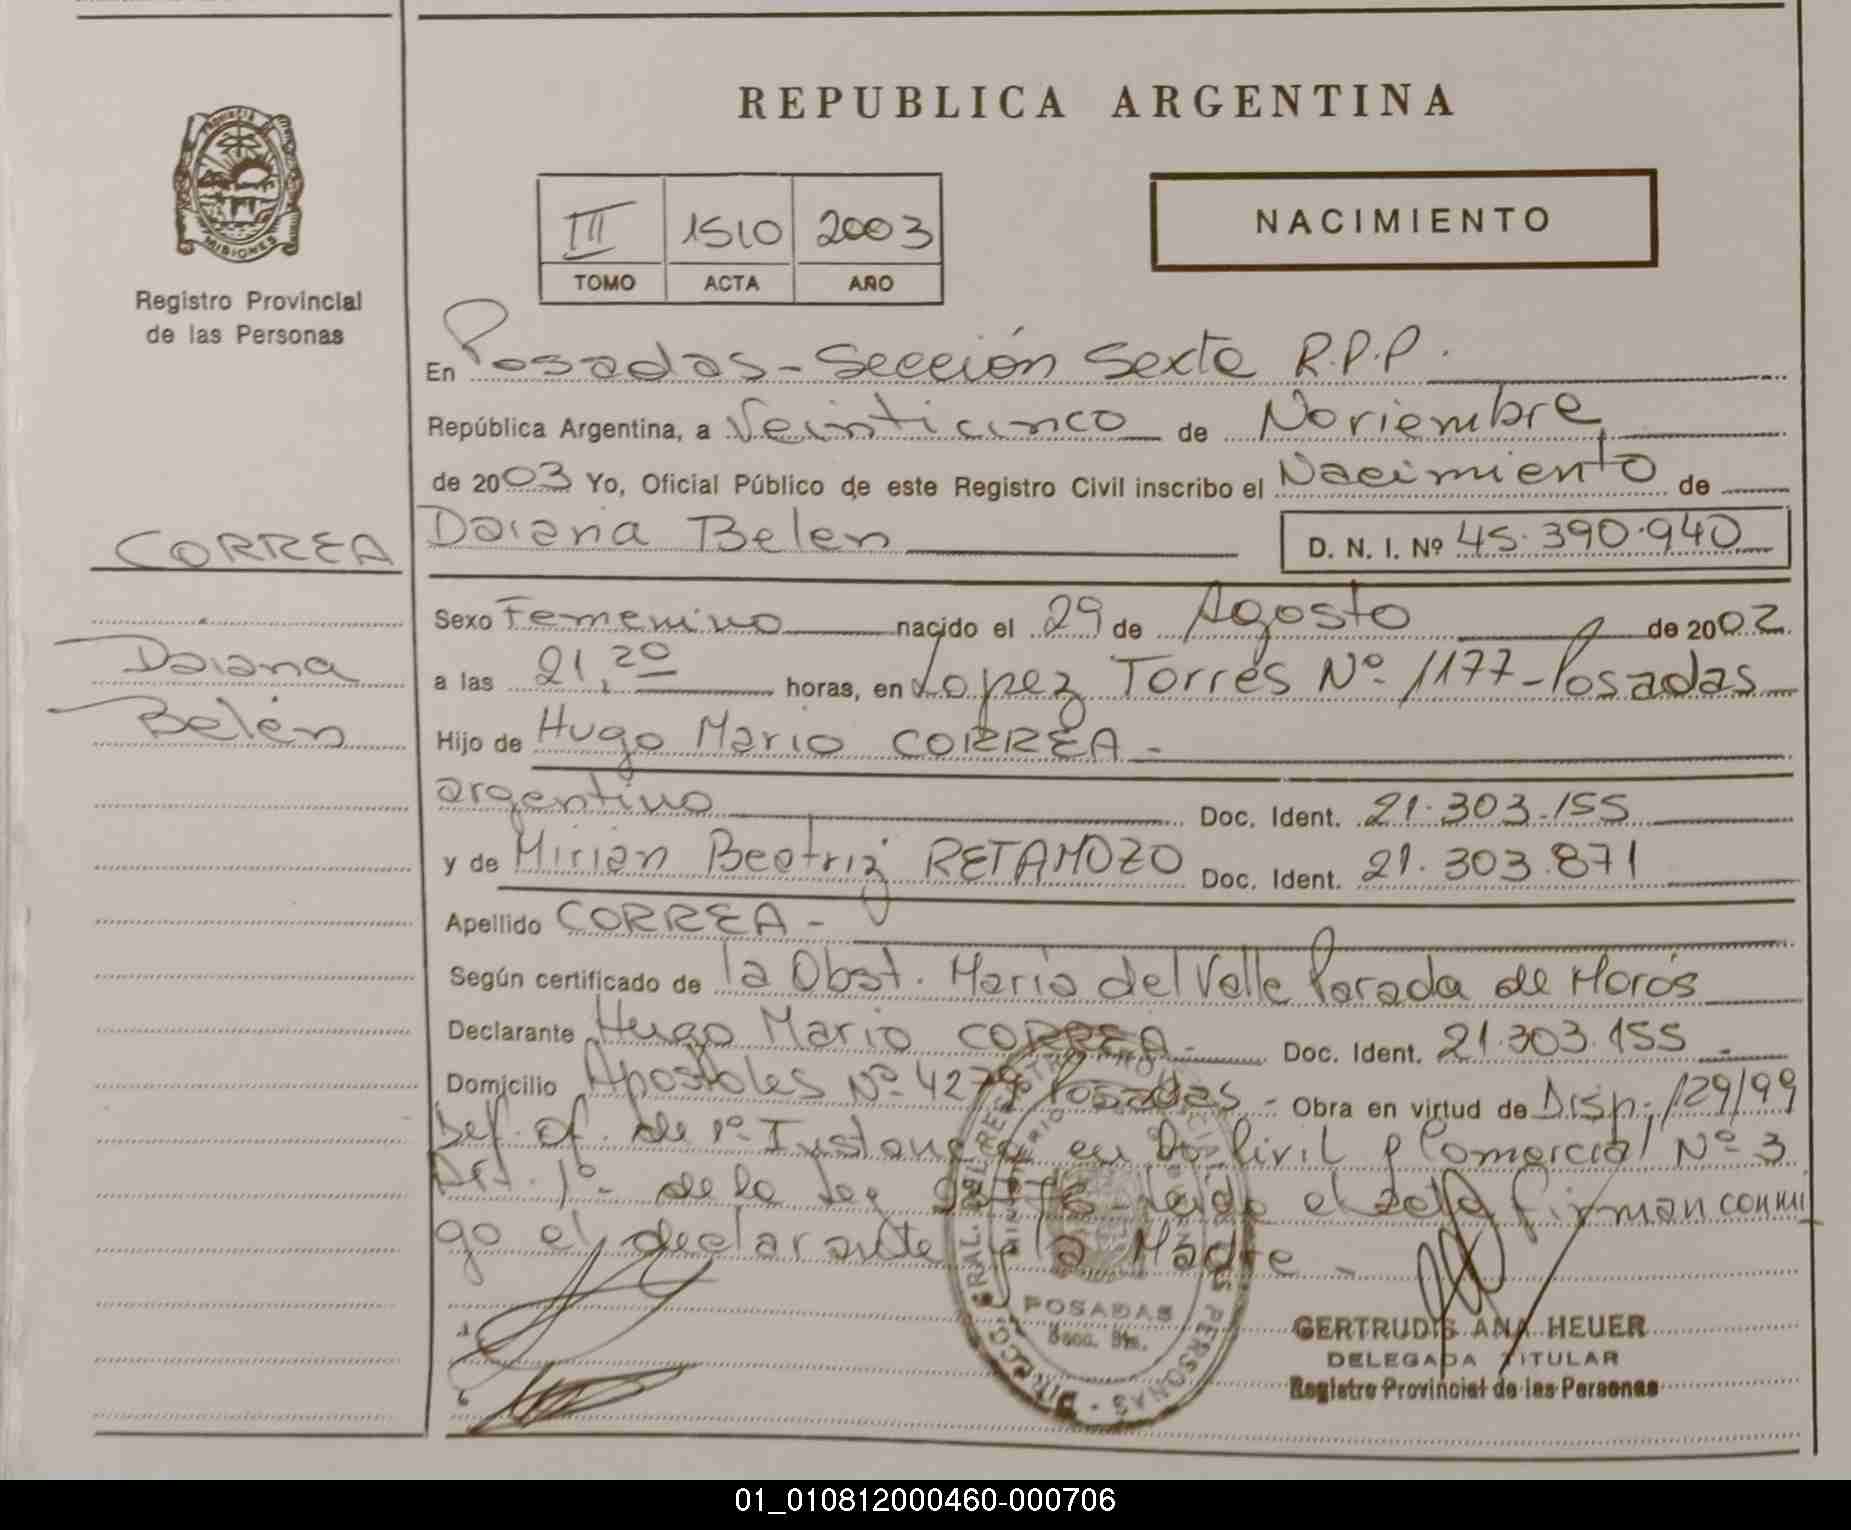 REPUBLICA ARGENTINA
PROVINCIA DE
MISIONES
Registro Provincial
de las Personas
III 1510 2003
TOMO ACTA AÑO
NACIMIENTO
En Posadas - Sección Sexta R.P.P.
República Argentina, a Veinticinco de Noviembre
de 2003 Yo, Oficial Público de este Registro Civil inscribo el Nacimiento de
CORREA
Daiana Belen D. N. I. Nº 45.390.940
Sexo Femenino nacido el 29 de Agosto de 2002
Daiana
a las 21,20 horas, en Lopez Torres Nº 1177 - Posadas
Belén
Hijo de Hugo Mario CORREA -
argentino Doc. Ident. 21.303.155
y de Mirian Beatriz RETAMOZO Doc. Ident. 21.303.871
Apellido CORREA -
Según certificado de la Obst. María del Valle Parada de Morós
Declarante Hugo Mario CORREA - Doc. Ident. 21.303.155 -
Domicilio Apostoles Nº 4279 Posadas - Obra en virtud de Disp. 129/99
Def. of. de 1º Instancia en lo Civil y Comercial Nº 3
Art. 1º de la Ley leida el acta firman conmi
go el declarante y la Madre -
POSADAS
Secc. 6ta.
GERTRUDIS ANA HEUER
DELEGADA TITULAR
Registro Provincial de las Personas
01_010812000460-000706